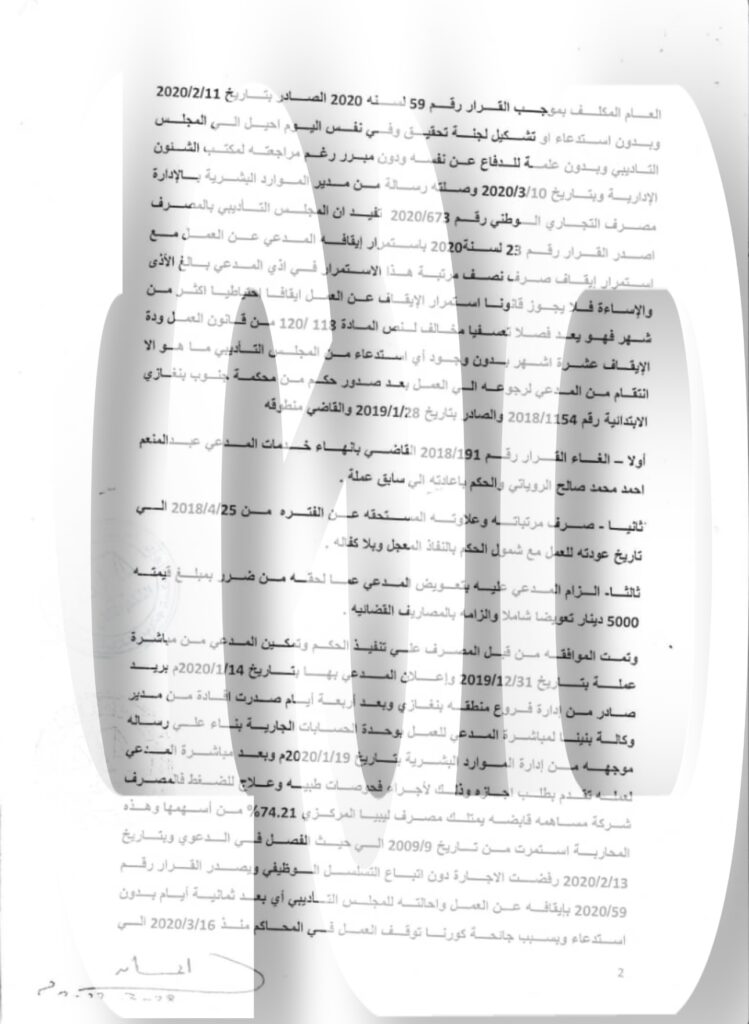 العام المكلف بموجب القرار رقم 59 لسنه 2020 الصادر بتاريخ 2020/2/11
وبدون استدعاء او تشكيل لجنة تحقيق وفي نفس اليوم احيل الي المجلس
التاديبي وبدون علمة للدفاع عن نفسه ودون مبرر رغم مراجعته لمكتب الشئون
الإدارية وبتاريخ 2020/3/10 وصلته رسالة من مدير الموارد البشرية بالإدارة
مصرف التجاري الوطني رقم 2020/673 تفيد ان المجلس التاديبي بالمصرف
اصدر القرار رقم 23 لسنة2020 باستمرار إيقافه المدعي عن العمل مع
استمرار إيقاف صرف نصف مرتبة هذا الاستمرار في اذي المدعي بالغ الأذى
والإساءة فلا يجوز قانونا استمرار الإيقاف عن العمل ايقافا احتياطيا اكثر من
شهر فهو يعد فصلا تعصفيا مخالف لنص المادة 118 /120 من قانون العمل ودة
الإيقاف عشرة اشهر بدون وجود أي استدعاء من المجلس التأديبي ما هو الا
انتقام من المدعي لرجوعه الي العمل بعد صدور حكم من محكمة جنوب بنغازي
الابتدائية رقم 2018/1154 والصادر بتاريخ 2019/1/28 والقاضي منطوقه
أولا – الغاء القرار رقم 2018/191 القاضي بانهاء خدمات المدعي عبدالمنعم
احمد محمد صالح الروياتي والحكم باعادته الي سابق عملة .
ثانيا - صرف مرتباته وعلاوته المستحقه عن الفتره من 2018/4/25 الي
تاريخ عودته للعمل مع شمول الحكم بالنفاذ المعجل وبلا كفاله .
ثالثا- الزام المدعي عليه بتعويض المدعي عما لحقه من ضرر بمبلغ قيمته
5000 دينار تعويضا شاملا والزامه بالمصاريف القضائيه .
وتمت الموافقه من قبل المصرف علي تنفيذ الحكم وتمكين المدعي من مباشرة
عملة بتاريخ 2019/12/31 وإعلان المدعي بها بتاريخ 2020/1/14م بريد
صادر من إدارة فروع منطقه بنغازي وبعد أربعة أيام صدرت افادة من مدير
وكالة بنينا لمباشرة المدعي للعمل بوحدة الحسابات الجارية بناء علي رساله
موجهه من إدارة الموارد البشرية بتاريخ 2020/1/19م وبعد مباشرة المدعي
لعمله تقدم بطلب اجازه وذلك لأجراء فحوصات طبيه وعلاج للضغط فالمصرف
شركة مساهمه قابضه يمتلك مصرف ليبيا المركزي 74.21% من أسهمها وهذه
المحاربة استمرت من تاريخ 2009/9 الي حيث الفصل في الدعوي وبتاريخ
2020/2/13 رفضت الاجازة دون اتباع التسلسل الوظيفي ويصدر القرار رقم
2020/59 بإيقافه عن العمل واحالته للمجلس التأديبي أي بعد ثمانية أيام بدون
استدعاء وبسبب جانحة كورنا توقف العمل في المحاكم منذ 2020/3/16 الي
2